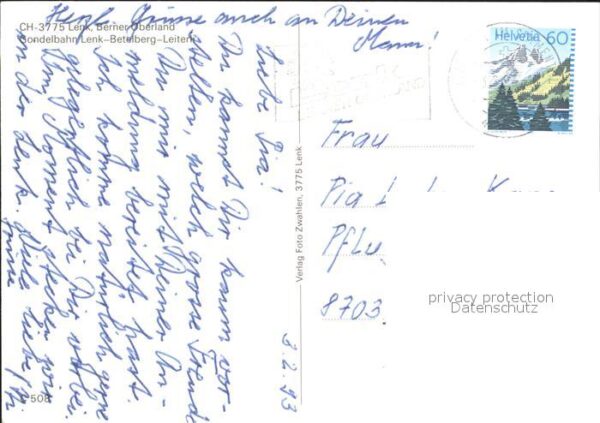 Herzl. Grüsse auch an Deinen
Mann!
CH-3775 Lenk, Berner Oberland
Gondelbahn Lenk–Betelberg–Leiterli
3.2.93
Liebe Pia!
Du kannst Dir kaum vor-
stellen, welch grosse Freude
Du mir mit Deiner An-
meldung bereitet hast.
Ich komme natürlich gerne
gelegentlich bei Dir vorbei.
Im Moment stecken wir
an der Lenk. Viele liebe
Grüsse
508
Verlag Foto Zwahlen, 3775 Lenk
Helvetia 60
Frau
Pia
Pflu
8703
privacy protection
Datenschutz